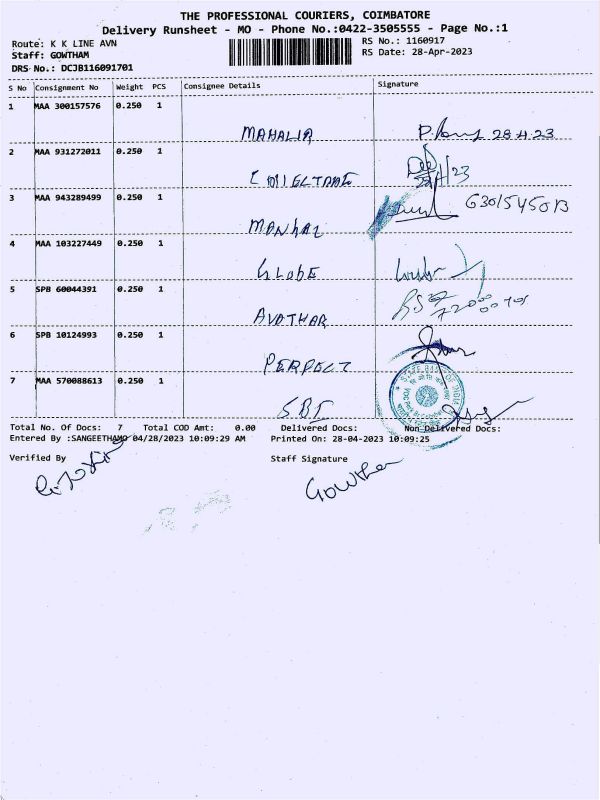 THE PROFESSIONAL COURIERS, COIMBATORE
Delivery Runsheet - MO - Phone No.:0422-3505555 - Page No.:1
Route: K K LINE AVN
RS No.: 1160917
Staff: GOWTHAM
RS Date: 28-Apr-2023
DRS No.: DCJB116091701
S No Consignment No Weight PCS Consignee Details Signature
1 MAA 300157576 0.250 1
MAHALIR 28 4 23
2 MAA 931272011 0.250 1
3 MAA 943289499 0.250 1
6301545013
4 MAA 103227449 0.250 1
GLOBE
5 SPB 60044391 0.250 1
AVATHAR
6 SPB 10124993 0.250 1
PERFECT
7 MAA 570088613 0.250 1
STATE BANK OF INDIA
SBI
Total No. Of Docs: 7 Total COD Amt: 0.00 Delivered Docs: Non Delivered Docs:
Entered By :SANGEETHAMO 04/28/2023 10:09:29 AM Printed On: 28-04-2023 10:09:25
Verified By Staff Signature
Gowtham